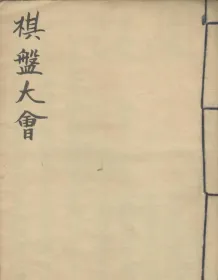 棋盤大會